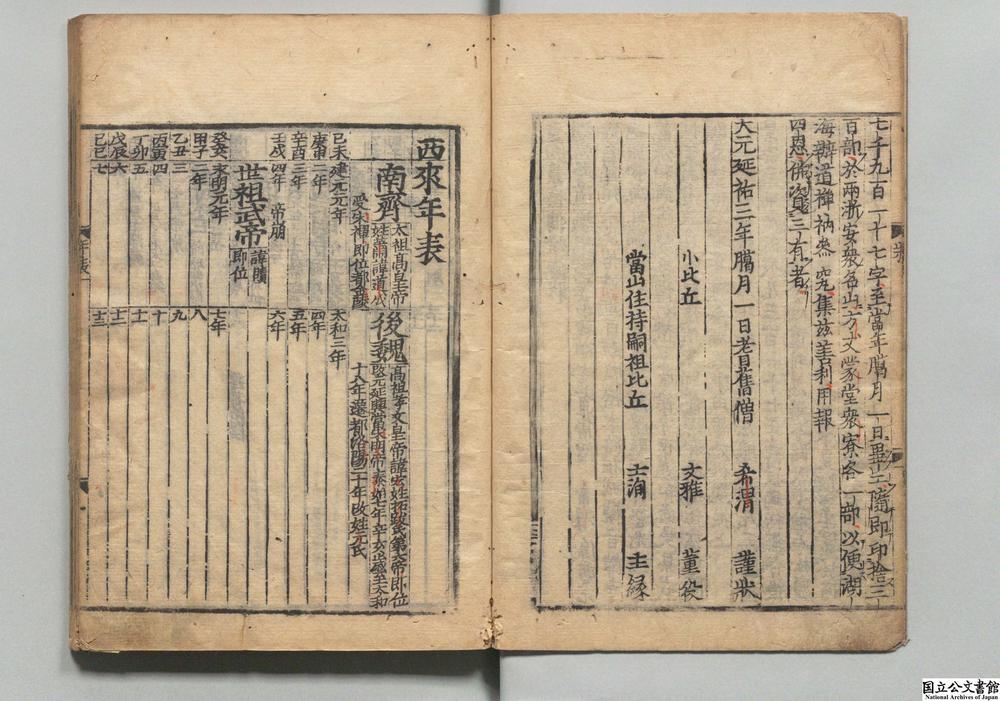 七千九百一十七字至當年臘月一日畢工隨即印拾三
百部於兩浙安衆名山方丈蒙堂衆寮各一部以便湖
海辦道禅衲叅究集茲善利用報
四恩資三有者
大元延祐三年臘月一日耆舊僧 希渭 謹狀
小比丘 文雅 董役
當山住持嗣祖比丘 士洵 主緣
西來年表
南齊 太祖高皇帝
姓蕭諱道成
受宋禪即位都金陵
後魏 高祖孝文皇帝諱宏姓拓跋氏第六帝即位
改元延興當宋明帝泰始七年辛亥至太和
十八年遷都洛陽二十年改姓元氏
己未 建元元年 太和三年
庚申 二年 四年
辛酉 三年 五年
壬戌 四年 帝崩 六年
世祖武帝 諱賾
即位
癸亥 永明元年 七年
甲子 二年 八
乙丑 三 九
丙寅 四 十
丁卯 五 十一
戊辰 六 十二
己巳 七 十三
年表
国立公文書館
National Archives of Japan